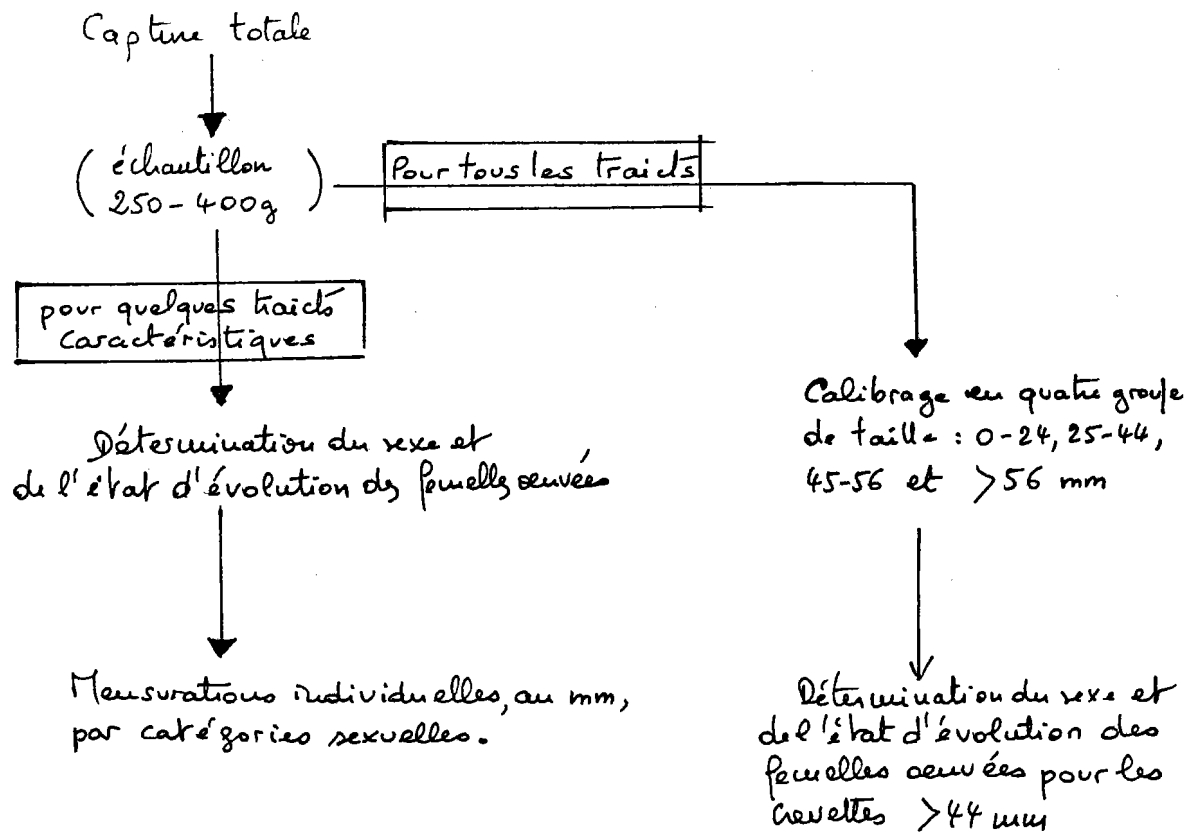 Capture totale
( échantillon
250-400g )
Pour tous les traicts
pour quelques traicts
caractéristiques
Détermination du sexe et
de l'état d'évolution des femelles oeuvées
Mensurations individuelles, au mm,
par catégories sexuelles.
Calibrage en quatre groupe
de taille : 0-24, 25-44,
45-56 et >56 mm
Détermination du sexe et
de l'état d'évolution des
femelles oeuvées pour les
crevettes >44 mm